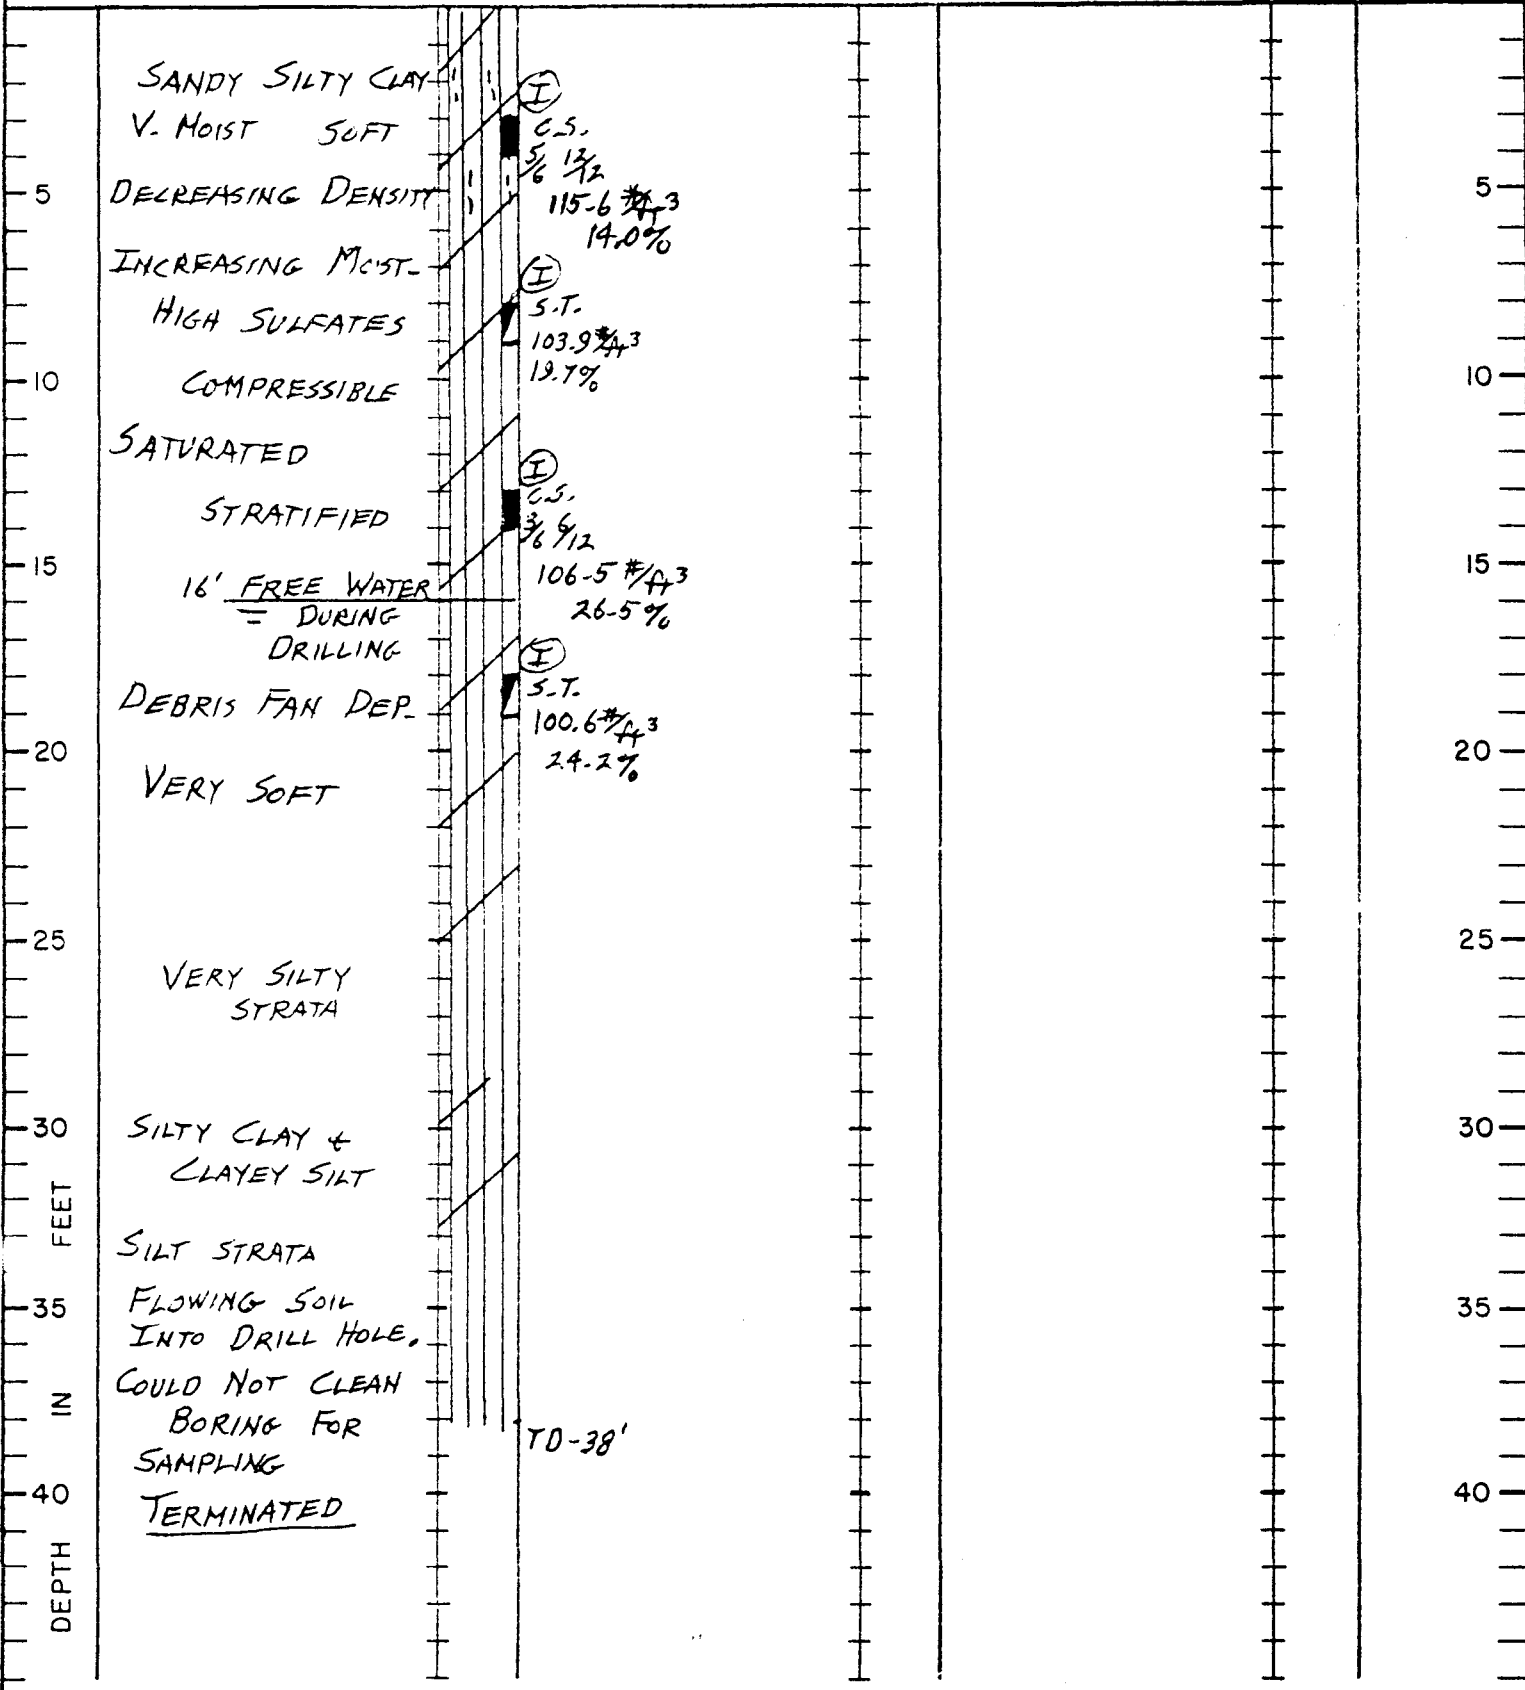 SANDY SILTY CLAY
V. MOIST SOFT
DECREASING DENSITY
INCREASING MOIST-
HIGH SULFATES
COMPRESSIBLE
SATURATED
STRATIFIED
16' FREE WATER
DURING
DRILLING
DEBRIS FAN DEP-
VERY SOFT
VERY SILTY
STRATA
SILTY CLAY &
CLAYEY SILT
SILT STRATA
FLOWING SOIL
INTO DRILL HOLE.
COULD NOT CLEAN
BORING FOR
SAMPLING
TERMINATED
I
C.S.
5/6 12/12
115-6 #/ft3
14.0%
I
S.T.
103.9 #/ft3
19.7%
I
C.S.
3/6 6/12
106-5 #/ft3
26-5%
I
S.T.
100.6 #/ft3
24-2%
TD-38'
5
10
15
20
25
30
35
40
DEPTH IN FEET
5
10
15
20
25
30
35
40